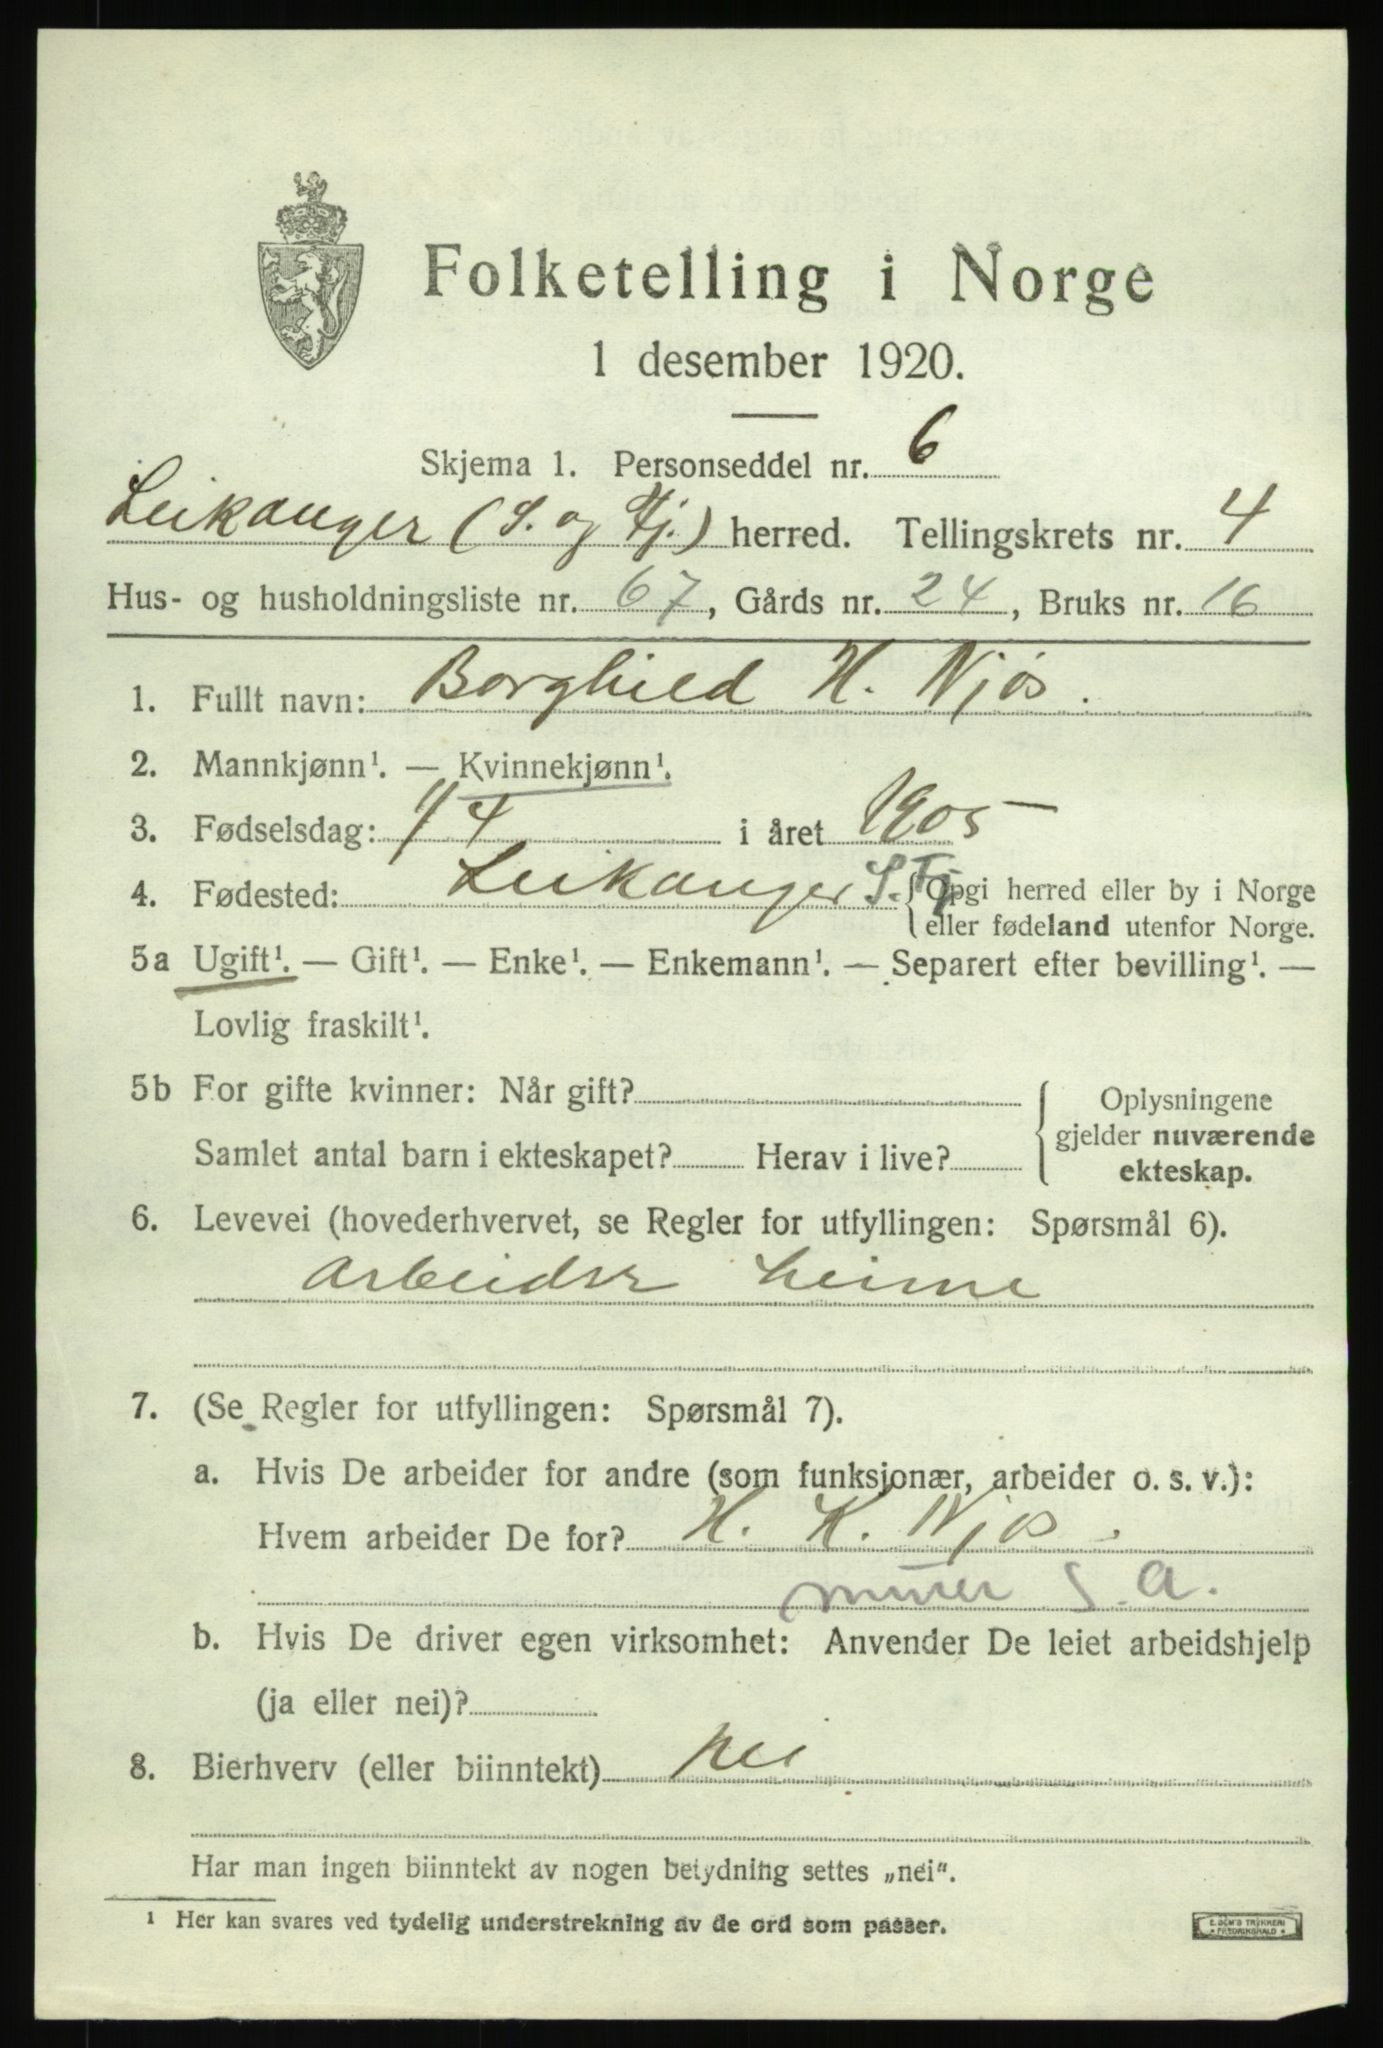 Folketelling i Norge
1 desember 1920.
Skjema 1. Personseddel nr. 6
Leikanger (S. og Fj.) herred. Tellingskrets nr. 4
Hus- og husholdningsliste nr. 67, Gårds nr. 24, Bruks nr. 16
1. Fullt navn: Borghild H. Njøs.
2. Mannkjønn¹. — Kvinnekjønn¹.
3. Fødselsdag: i året 1905
4. Fødested: Leikanger S. Fj. Opgi herred eller by i Norge
eller fødeland utenfor Norge.
5a Ugift¹. — Gift¹. — Enke¹. — Enkemann¹. — Separert efter bevilling¹. —
Lovlig fraskilt¹.
5b For gifte kvinner: Når gift?
Samlet antal barn i ekteskapet? Herav i live?
Oplysningene
gjelder nuværende
ekteskap.
6. Levevei (hovederhvervet, se Regler for utfyllingen: Spørsmål 6).
Arbeider heime
7. (Se Regler for utfyllingen: Spørsmål 7).
a. Hvis De arbeider for andre (som funksjonær, arbeider o. s. v.):
Hvem arbeider De for? H. K. Njøs.
murer S. A.
b. Hvis De driver egen virksomhet: Anvender De leiet arbeidshjelp
(ja eller nei)?
8. Bierhverv (eller biinntekt) nei
Har man ingen biinntekt av nogen betydning settes „nei“.
¹ Her kan svares ved tydelig understrekning av de ord som passer.
E. SEM'S TRYKKERI
FREDRIKSHALD